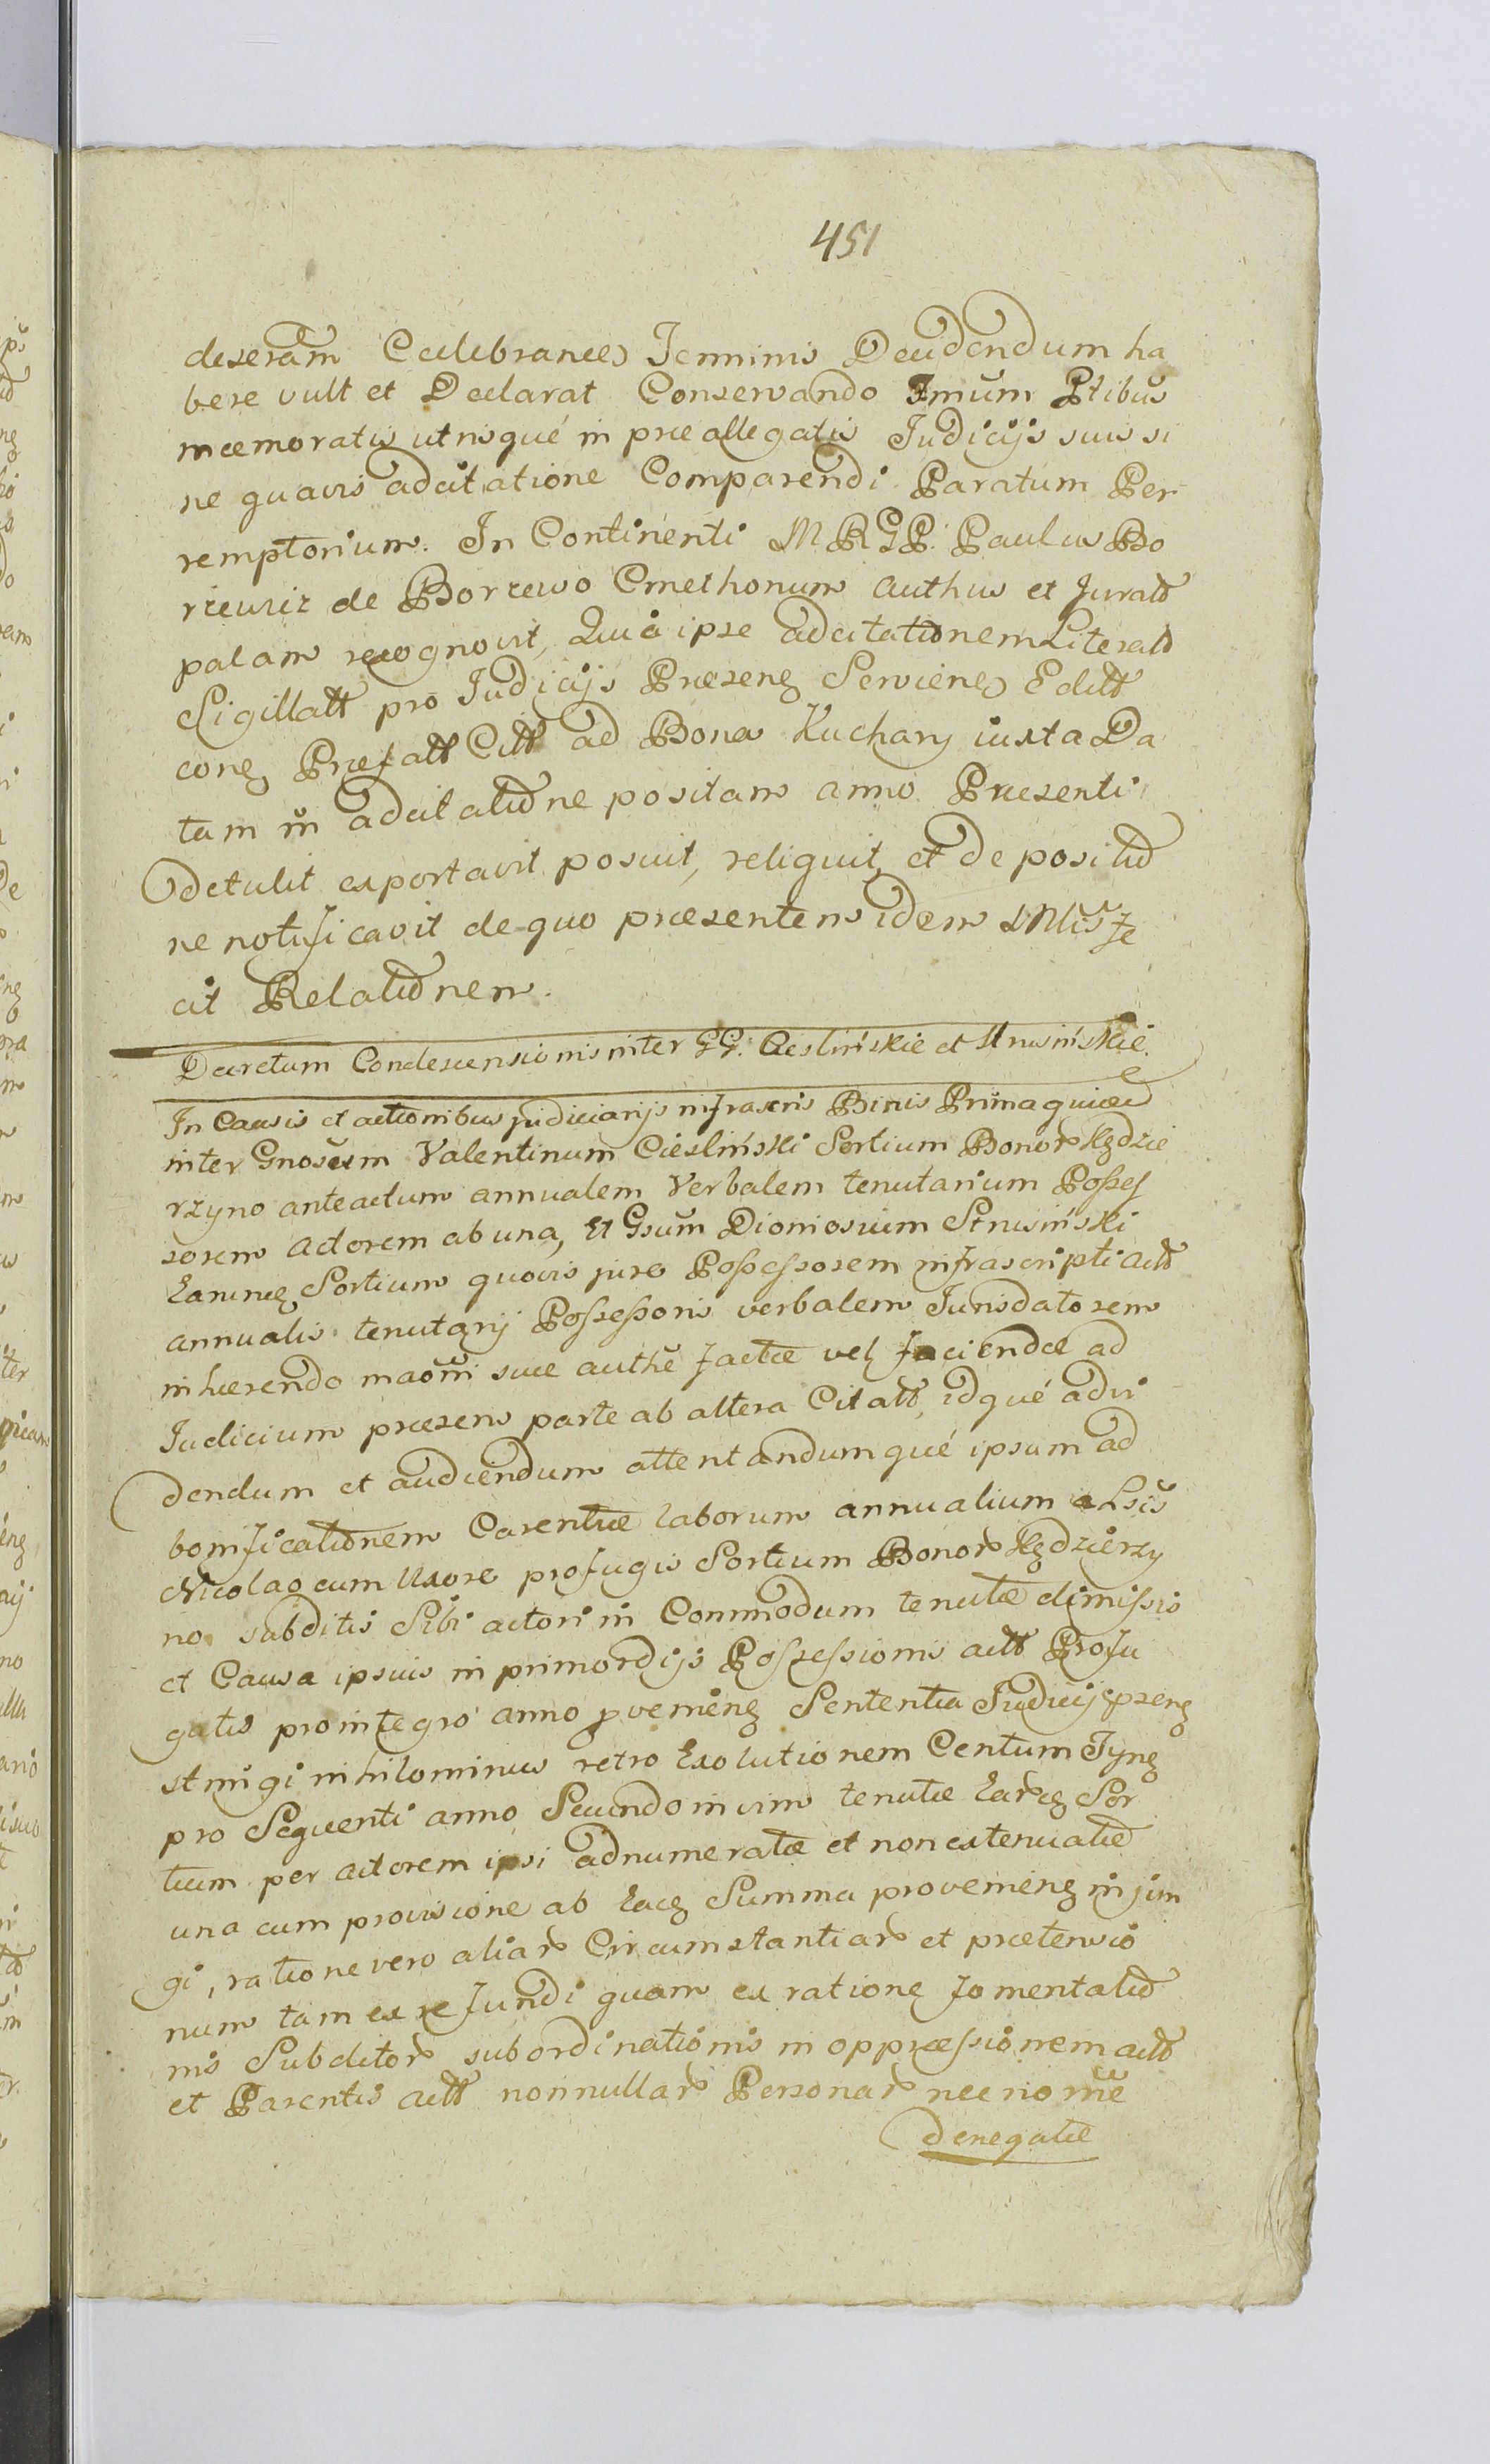 451
deseram Celebranes Terminis Decidendum ha
bere vult et Declarat Conservando Tmum Ptibus
memoratis utrisqué in præallegatis Judicijs suis si
ne quavis adcitatione Comparendi Paratum Per
remptorium. In Continenti M RGP. Paulus Bo
rzewicz de Borzewo Cmethonum authus et Juratt
palam recognovit, Quia ipse adcitationem Literatt
Sigillatt pro Judicijs Præsenz Serviens Editt
conz Præfatt Citt ad Bona Kuchary iuxta Da
tam in adcitatione positam anno Præsenti
detulit exportavit posuit, reliquit, et de positio
ne notificavit de quo præsentem idem Mlis fe
cit Relationem.
Decretum Condescensionis inter GG. Cieslińskie et Strusińskie.
In Causis et actionibus judiciarijs infrascris Binis Prima quidem
inter Gnosum Valentinum Ciesliński Sortium Bonor Kędzie
rzyno anteactum annualem Verbalem tenutarium Posses
sorem actorem ab una, Et Gsum Dionisium Strusiński
Earunz Sortium quovis jure Possessorem infrascripti actt
annualis tenutarij Possessoris verbalem Jurisdatorem
inhærendo maoni suæ authe factæ vel faciendæ ad
Judicium præsens parte ab altera Citatt, idqué ad vi
dendum et audiendum attentandumqué ipsum ad
bonificationem Carentiæ laborum annualium a Lsis
Nicolao cum Uxore profugis Sortium Bonor Kędzierzy
no subditis Sibi actori in Commodum tenutæ dimissis
et Causa ipsius in primordijs Possessionis actt Profu
gatis pro integro anno pveninz Sententia Judicij psenz
stringi nihilominus retro Exolutionem Centum Tynz
pro Sequenti anno Secundo in vim tenutæ Earcz Sor
tium per actorem ipsi adnumeratæ et non extenuatæ
una cum provisione ab Eacz Summa provenienz injun
gi, ratione vero aliar Circumstantiar et prætensio
num tam ex re fundi quam ex rationæ fomentatio
nis Subditor subordinationis in oppræssionem actt
et Parentis actt nonnullar Personar nec non
denegatæ